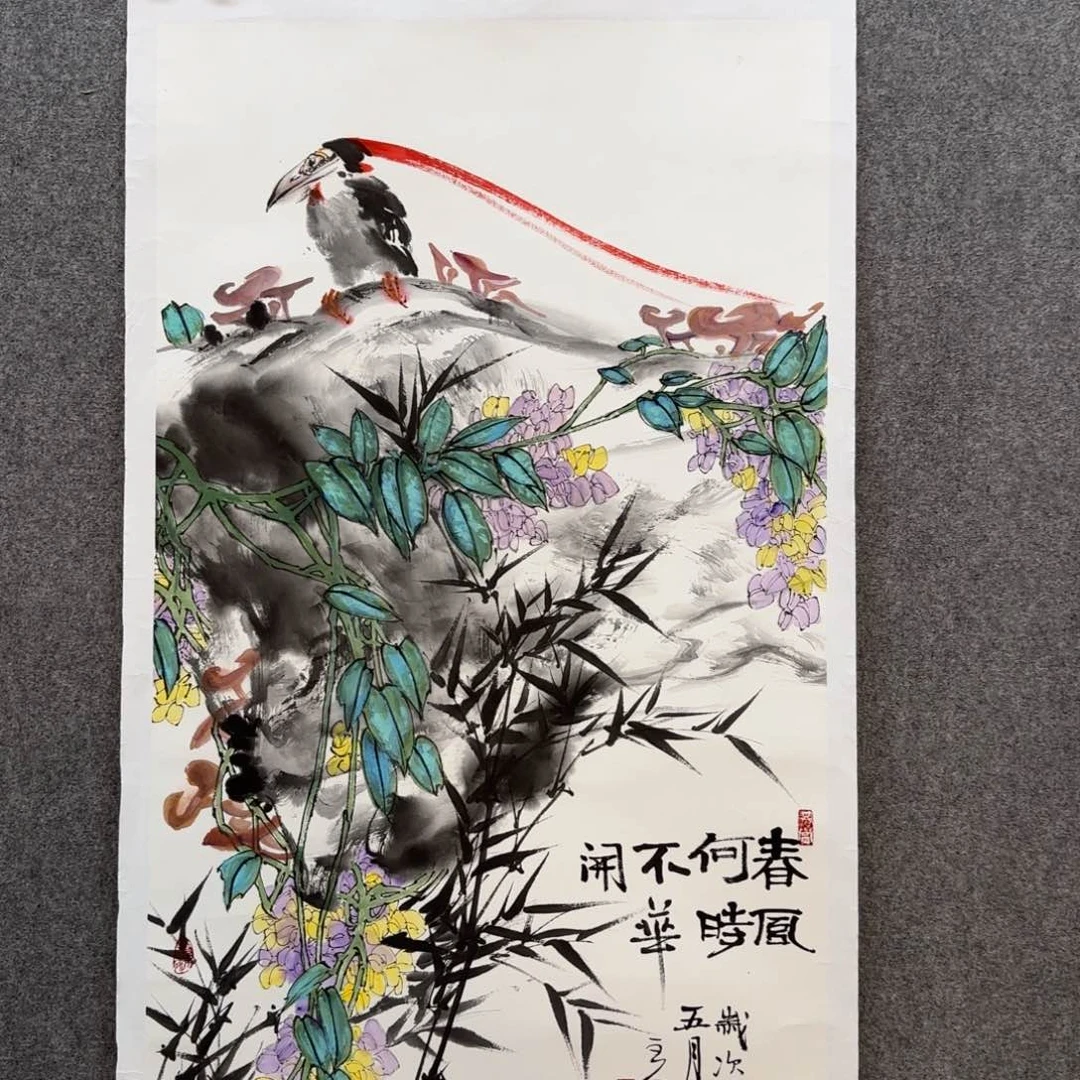 春風
何時
不華
開
歲次
五月